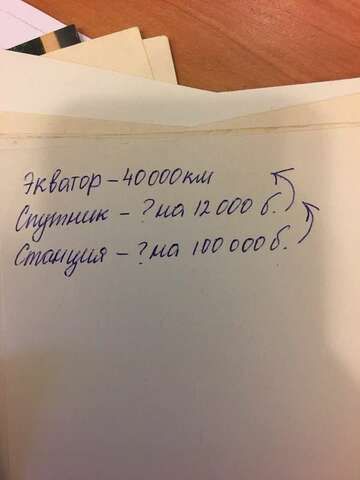 Экватор – 40000км
Спутник – ? на 12 000 б.
Станция – ? на 100 000 б.